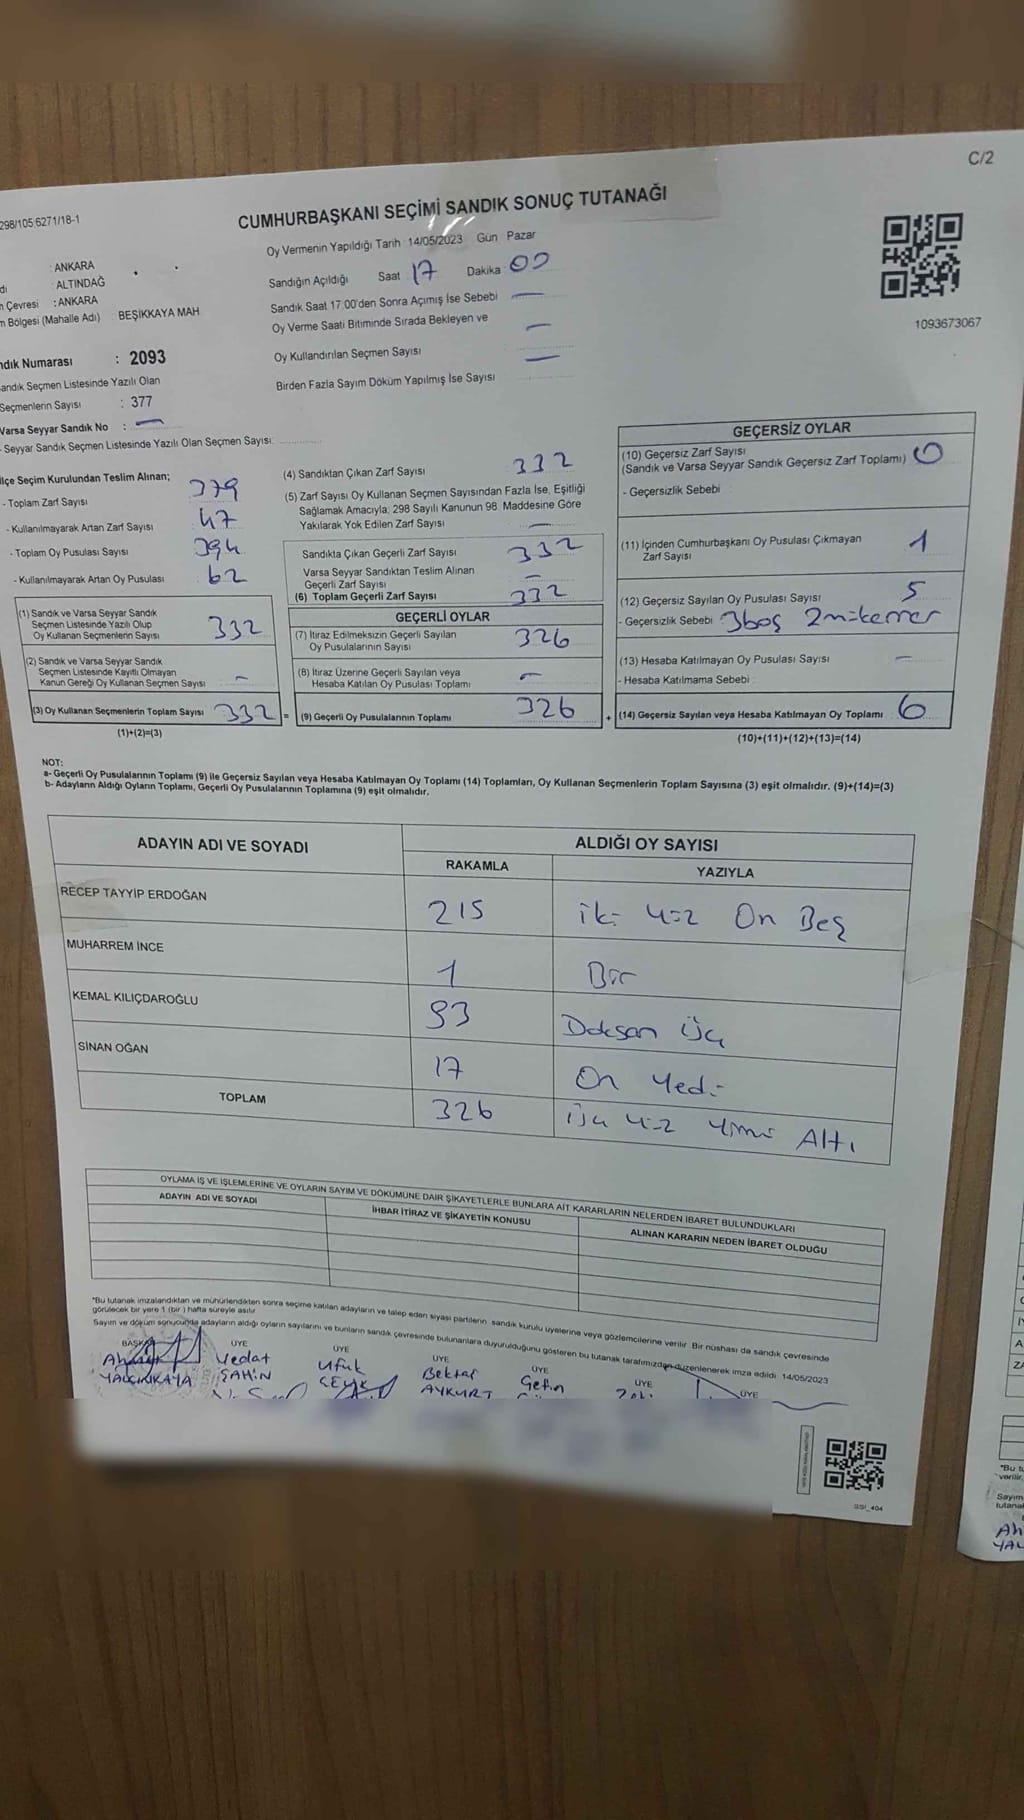 C/2
298/105:6271/18-1
CUMHURBAŞKANI SEÇİMİ SANDIK SONUÇ TUTANAĞI
Oy Vermenin Yapıldığı Tarih 14/05/2023 Gün Pazar
: ANKARA
: ALTINDAĞ
Çevresi : ANKARA
Bölgesi (Mahalle Adı) BEŞİKKAYA MAH
Sandığın Açıldığı Saat 17 Dakika 00
Sandık Saat 17:00'den Sonra Açımış İse Sebebi —
Oy Verme Saati Bitiminde Sırada Bekleyen ve
Oy Kullandırılan Seçmen Sayısı —
Birden Fazla Sayım Döküm Yapılmış İse Sayısı —
1093673067
Numarası : 2093
Seçmen Listesinde Yazılı Olan
Seçmenlerin Sayısı : 377
Varsa Seyyar Sandık No : —
- Seyyar Sandık Seçmen Listesinde Yazılı Olan Seçmen Sayısı:
İlçe Seçim Kurulundan Teslim Alınan;
- Toplam Zarf Sayısı 379
- Kullanılmayarak Artan Zarf Sayısı 47
- Toplam Oy Pusulası Sayısı 394
- Kullanılmayarak Artan Oy Pusulası 62
(1) Sandık ve Varsa Seyyar Sandık
Seçmen Listesinde Yazılı Olup
Oy Kullanan Seçmenlerin Sayısı 332
(2) Sandık ve Varsa Seyyar Sandık
Seçmen Listesinde Kayıtlı Olmayan
Kanun Gereği Oy Kullanan Seçmen Sayısı —
(3) Oy Kullanan Seçmenlerin Toplam Sayısı 332 =
(1)+(2)=(3)
(4) Sandıktan Çıkan Zarf Sayısı 332
(5) Zarf Sayısı Oy Kullanan Seçmen Sayısından Fazla İse, Eşitliği
Sağlamak Amacıyla; 298 Sayılı Kanunun 98. Maddesine Göre
Yakılarak Yok Edilen Zarf Sayısı —
Sandıkta Çıkan Geçerli Zarf Sayısı 332
Varsa Seyyar Sandıktan Teslim Alınan
Geçerli Zarf Sayısı —
(6) Toplam Geçerli Zarf Sayısı 332
GEÇERLİ OYLAR
(7) İtiraz Edilmeksizin Geçerli Sayılan
Oy Pusulalarının Sayısı 326
(8) İtiraz Üzerine Geçerli Sayılan veya
Hesaba Katılan Oy Pusulası Toplamı —
(9) Geçerli Oy Pusulalarının Toplamı 326 +
GEÇERSİZ OYLAR
(10) Geçersiz Zarf Sayısı
(Sandık ve Varsa Seyyar Sandık Geçersiz Zarf Toplamı) 0
- Geçersizlik Sebebi
(11) İçinden Cumhurbaşkanı Oy Pusulası Çıkmayan
Zarf Sayısı 1
(12) Geçersiz Sayılan Oy Pusulası Sayısı 5
- Geçersizlik Sebebi 3boş 2mükerrer
(13) Hesaba Katılmayan Oy Pusulası Sayısı —
- Hesaba Katılmama Sebebi
(14) Geçersiz Sayılan veya Hesaba Katılmayan Oy Toplamı 6
(10)+(11)+(12)+(13)=(14)
NOT:
a- Geçerli Oy Pusulalarının Toplamı (9) ile Geçersiz Sayılan veya Hesaba Katılmayan Oy Toplamı (14) Toplamları, Oy Kullanan Seçmenlerin Toplam Sayısına (3) eşit olmalıdır. (9)+(14)=(3)
b- Adayların Aldığı Oyların Toplamı, Geçerli Oy Pusulalarının Toplamına (9) eşit olmalıdır.
ADAYIN ADI VE SOYADI ALDIĞI OY SAYISI
RAKAMLA YAZIYLA
RECEP TAYYİP ERDOĞAN 215 iki yüz On Beş
MUHARREM İNCE 1 Bir
KEMAL KILIÇDAROĞLU 93 Doksan üç
SİNAN OĞAN 17 On Yedi
TOPLAM 326 üç yüz yirmi Altı
OYLAMA İŞ VE İŞLEMLERİNE VE OYLARIN SAYIM VE DÖKÜMÜNE DAİR ŞİKAYETLERLE BUNLARA AİT KARARLARIN NELERDEN İBARET BULUNDUKLARI
ADAYIN ADI VE SOYADI İHBAR İTİRAZ VE ŞİKAYETİN KONUSU ALINAN KARARIN NEDEN İBARET OLDUĞU
*Bu tutanak imzalandıktan ve mühürlendikten sonra seçime katılan adayların ve talep eden siyasi partilerin sandık kurulu üyelerine veya gözlemcilerine verilir. Bir nüshası da sandık çevresinde
görülecek bir yere 1 (bir) hafta süreyle asılır.
Sayım ve döküm sonucunda adayların aldığı oyların sayılarını ve bunların sandık çevresinde bulunanlara duyurulduğunu gösteren bu tutanak tarafımızdan düzenlenerek imza edildi. 14/05/2023
BAŞKAN ÜYE ÜYE ÜYE ÜYE ÜYE ÜYE
YALÇINKAYA
Vedat ŞAHİN
Ufuk
Bektaş AYKURT
Çetin
SSI_404